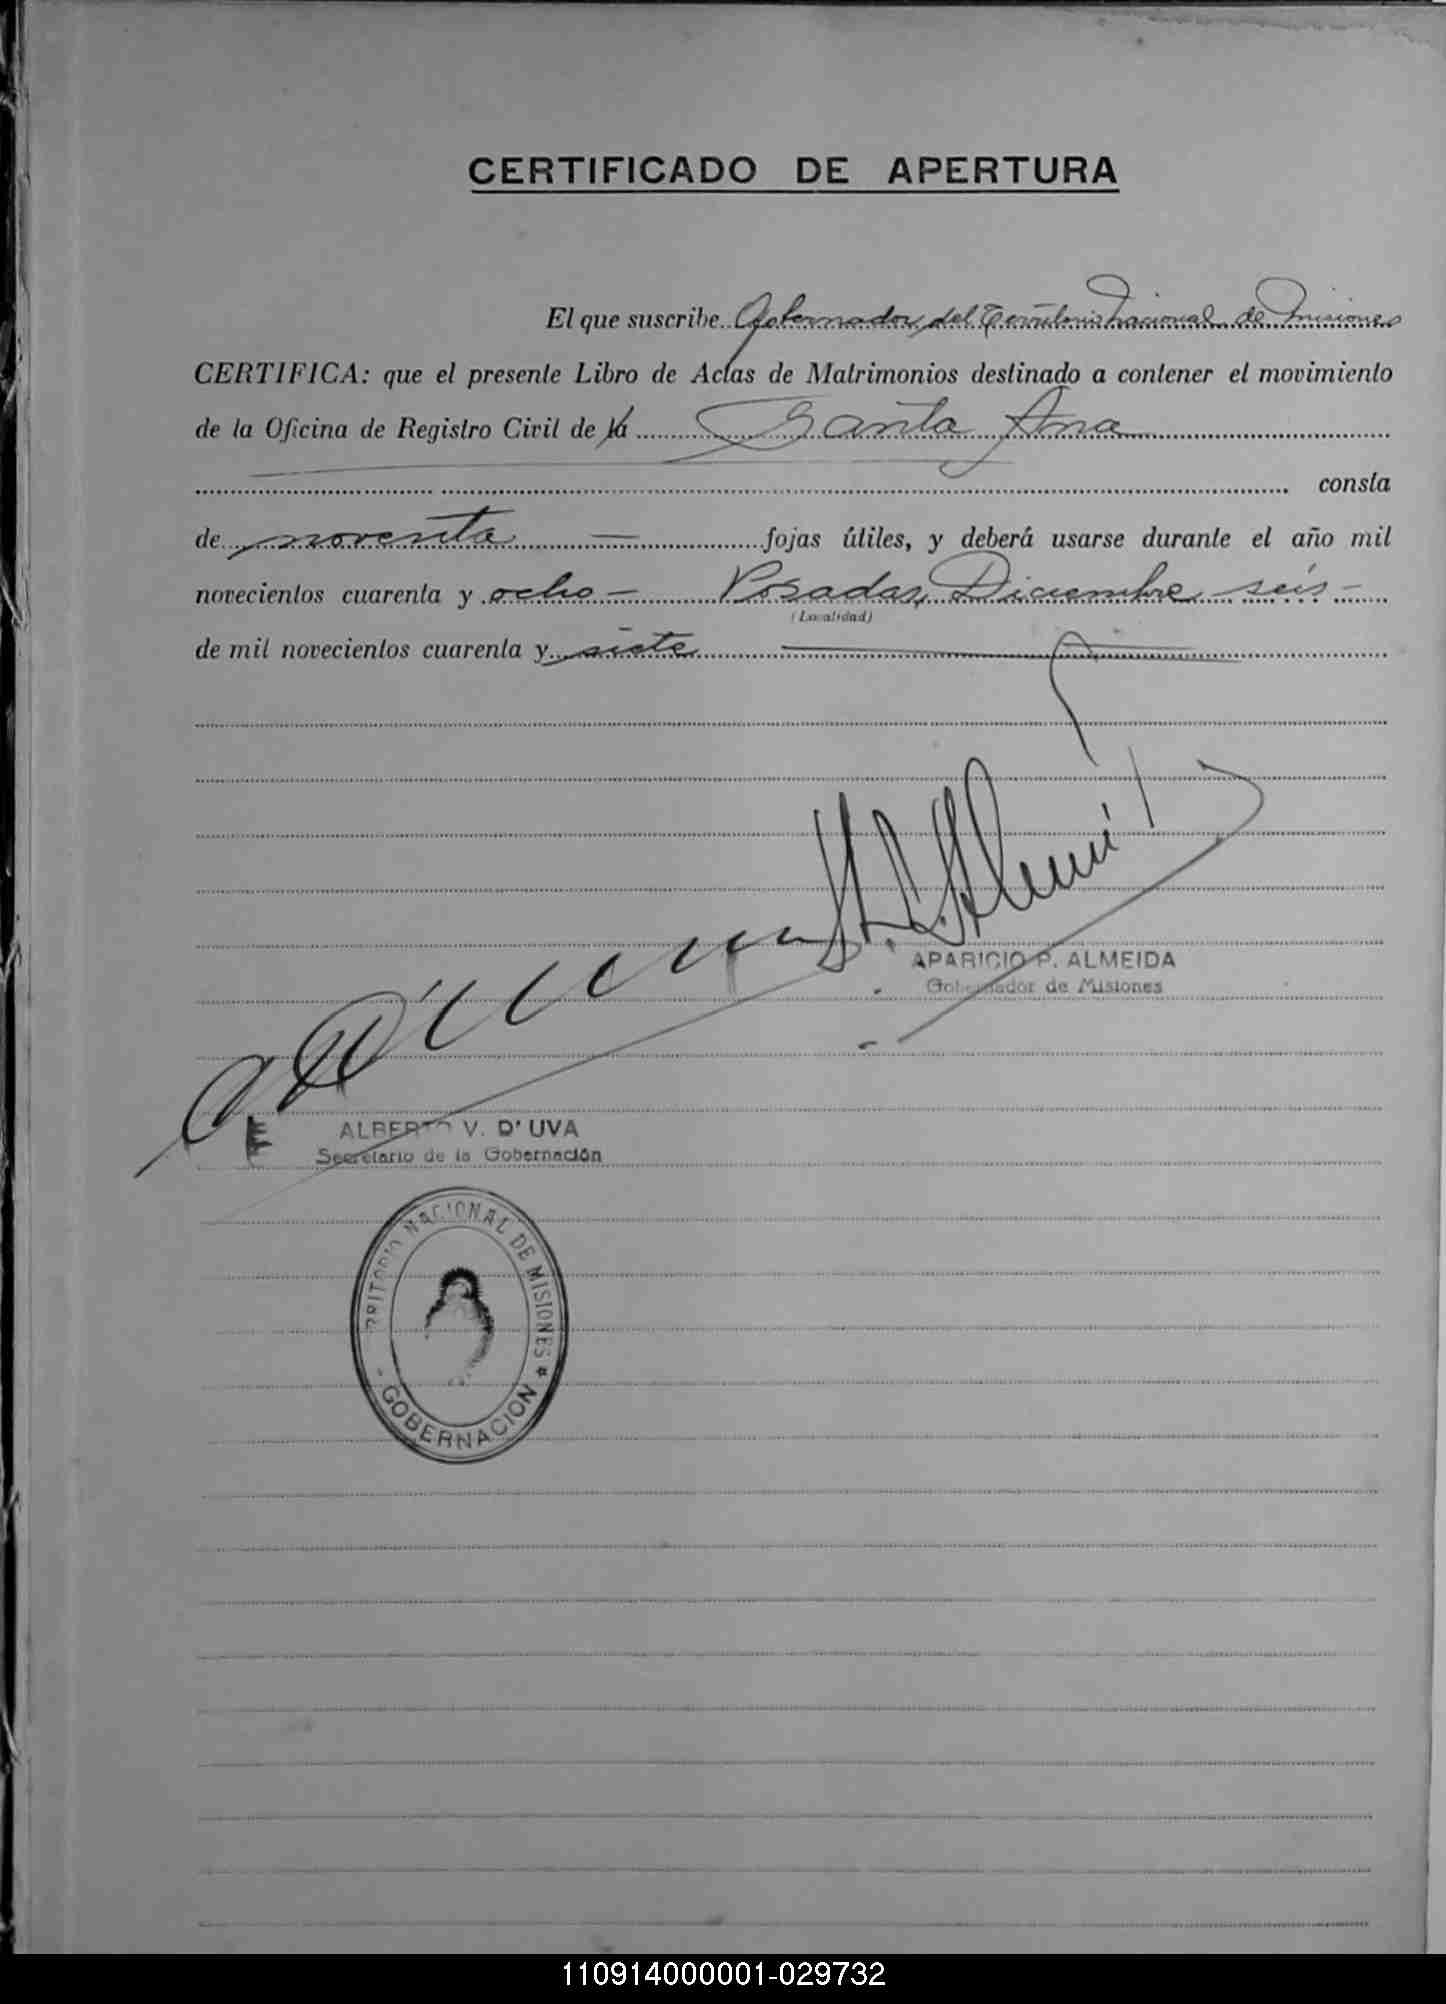 CERTIFICADO DE APERTURA
El que suscribe Gobernador del Territorio Nacional de Misiones
CERTIFICA: que el presente Libro de Actas de Matrimonios destinado a contener el movimiento
de la Oficina de Registro Civil de la Santa Ana
consta
de noventa — fojas útiles, y deberá usarse durante el año mil
novecientos cuarenta y ocho — Posadas, Diciembre seis —
(Localidad)
de mil novecientos cuarenta y siete
APARICIO P. ALMEIDA
Gobernador de Misiones
ALBERTO V. D' UVA
Secretario de la Gobernación
RRITORIO NACIONAL DE MISIONES *
- GOBERNACION
110914000001-029732